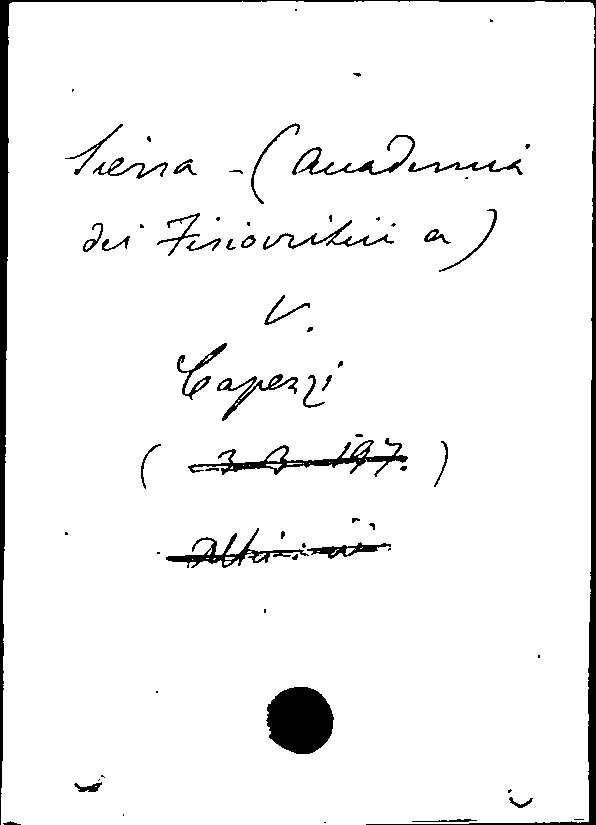 Siena - (Accademia
dei Fisiocritici a)
V.
Capezzi
( 3 3 197. )